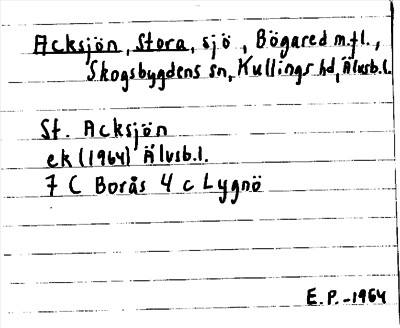 Acksjön, Stora, sjö, Bögared m.fl.,
Skogsbygdens sn, Kullings hd, Älvsb.l.
St. Acksjön
ek (1964) Älvsb.l.
7 C Borås 4 c Lygnö
E.P. -1964